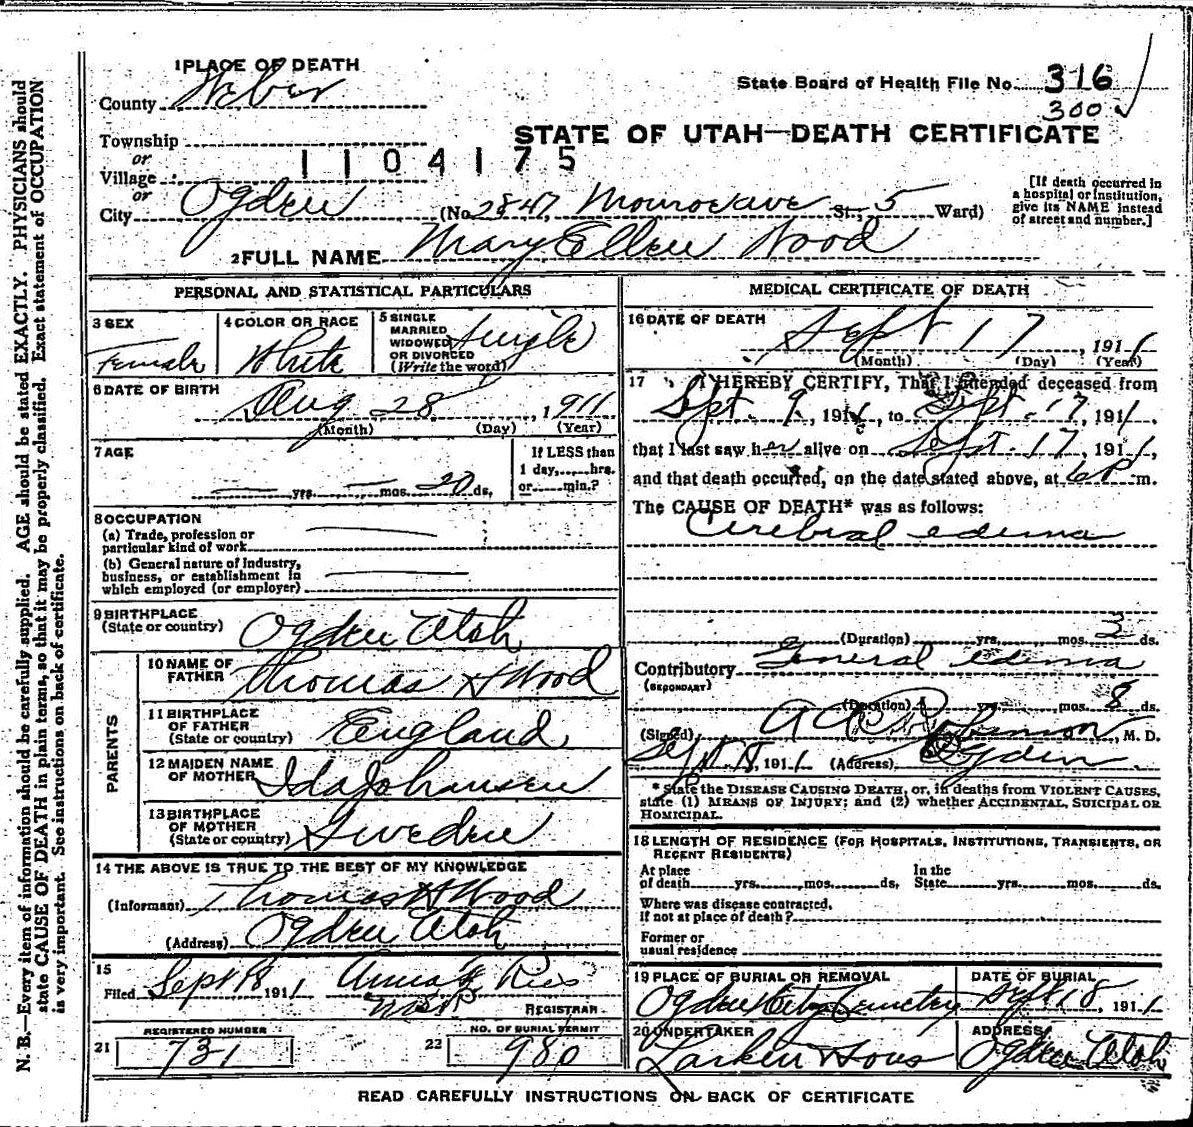 1 PLACE OF DEATH
County Weber
State Board of Health File No. 316
300
Township
or
STATE OF UTAH—DEATH CERTIFICATE
1104175
Village
or
City Ogden (No. 2847, Monroe ave St., 5 Ward)
[If death occurred in a hospital or institution, give its NAME instead of street and number.]
2 FULL NAME Mary Ellen Wood
PERSONAL AND STATISTICAL PARTICULARS
3 SEX
Female
4 COLOR OR RACE
White
5 SINGLE
MARRIED
WIDOWED
OR DIVORCED
(Write the word)
Single
6 DATE OF BIRTH
Aug 28, 1911
(Month) (Day) (Year)
7 AGE
— yrs. — mos. 20 ds.
If LESS than
1 day, hrs.
or min.?
8 OCCUPATION
(a) Trade, profession or
particular kind of work
(b) General nature of industry,
business, or establishment in
which employed (or employer)
9 BIRTHPLACE
(State or country) Ogden Utah
PARENTS
10 NAME OF
FATHER Thomas H Wood
11 BIRTHPLACE
OF FATHER
(State or country) England
12 MAIDEN NAME
OF MOTHER Ida Johansen
13 BIRTHPLACE
OF MOTHER
(State or country) Sweden
14 THE ABOVE IS TRUE TO THE BEST OF MY KNOWLEDGE
(Informant) Thomas H Wood
(Address) Ogden Utah
15
Filed Sept 18 1911 Anna Ries
REGISTRAR
REGISTERED NUMBER
21 731
NO. OF BURIAL PERMIT
22 980
MEDICAL CERTIFICATE OF DEATH
16 DATE OF DEATH
Sept 17, 1911
(Month) (Day) (Year)
17 I HEREBY CERTIFY, That I attended deceased from
Sept. 9, 1911, to Sept. 17, 1911.
that I last saw her alive on Sept. 17, 1911,
and that death occurred, on the date stated above, at 6 P m.
The CAUSE OF DEATH* was as follows:
Cerebral edema
(Duration) yrs. mos. 3 ds.
Contributory General edema
(SECONDARY)
(Duration) yrs. mos. 8 ds.
(Signed) Robinson, M. D.
Sept 18, 1911 (Address) Ogden
* State the DISEASE CAUSING DEATH, or, in deaths from VIOLENT CAUSES,
state (1) MEANS OF INJURY; and (2) whether ACCIDENTAL, SUICIDAL OR
HOMICIDAL.
18 LENGTH OF RESIDENCE (FOR HOSPITALS, INSTITUTIONS, TRANSIENTS, OR
RECENT RESIDENTS)
At place
of death yrs. mos. ds.
In the
State yrs. mos. ds.
Where was disease contracted,
if not at place of death?
Former or
usual residence
19 PLACE OF BURIAL OR REMOVAL
Ogden City Cemetery
DATE OF BURIAL
Sept 18, 1911
20 UNDERTAKER
Larkin & Sons
ADDRESS
Ogden Utah
READ CAREFULLY INSTRUCTIONS ON BACK OF CERTIFICATE
N. B.—Every item of information should be carefully supplied. AGE should be stated EXACTLY. PHYSICIANS should
state CAUSE OF DEATH in plain terms, so that it may be properly classified. Exact statement of OCCUPATION
is very important. See instructions on back of certificate.